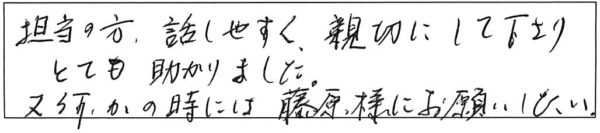 担当の方、話しやすく、親切にして下さり
とても助かりました。
又何かの時には藤原様にお願いしたい。